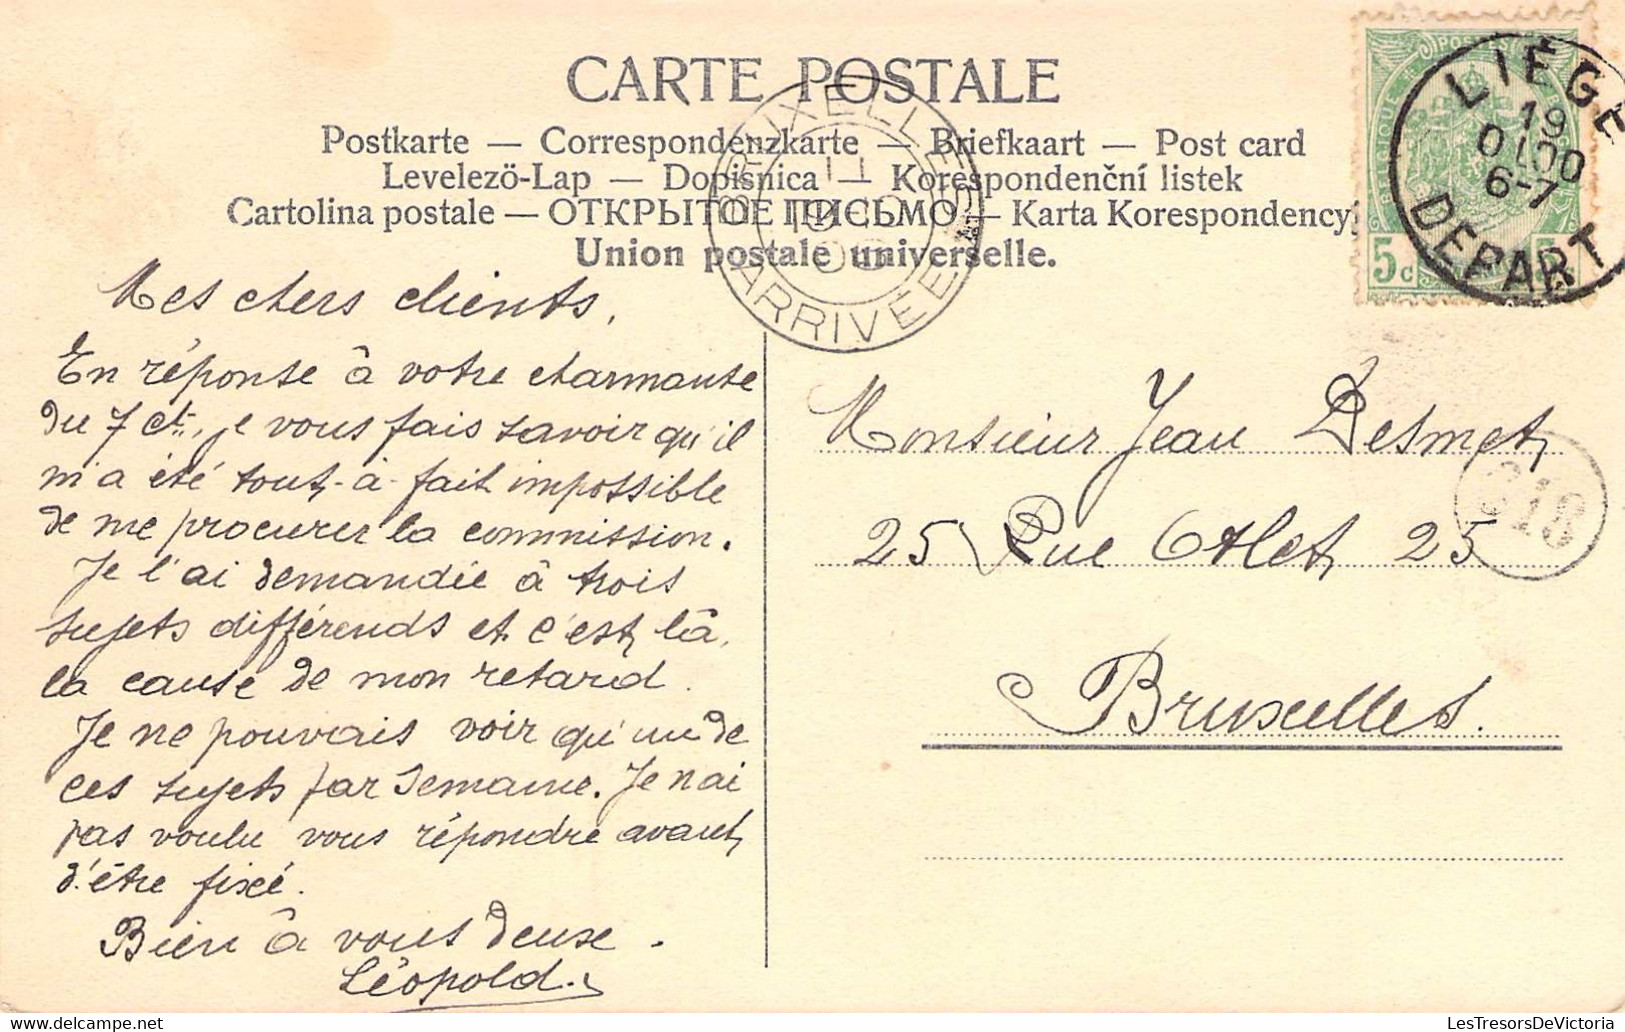 CARTE POSTALE
Postkarte — Correspondenzkarte — Briefkaart — Post card
Levelezö-Lap — Dopisnica — Korespondenční listek
Cartolina postale — ОТКРЫТОЕ ПИСЬМО — Karta Korespondencyj
Union postale universelle.
BELGIQUE
5c
LIÉGE
19
6-7
DEPART
BRUXELLES
11
19
ARRIVÉE
Mes chers clients,
En réponse à votre charmante
du 7 ct., je vous fais savoir qu'il
m'a été tout-à-fait impossible
de me procurer la commission.
Je l'ai demandée à trois
sujets différends et c'est là,
la cause de mon retard.
Je ne pouvais voir qu'un de
ces sujets par semaine. Je n'ai
pas voulu vous répondre avant
d'être fixé.
Bien à vous deux.
Léopold.
Monsieur Jean Desmet
25 Rue 25
Bruxelles.
www.delcampe.net
LesTresorsDeVictoria